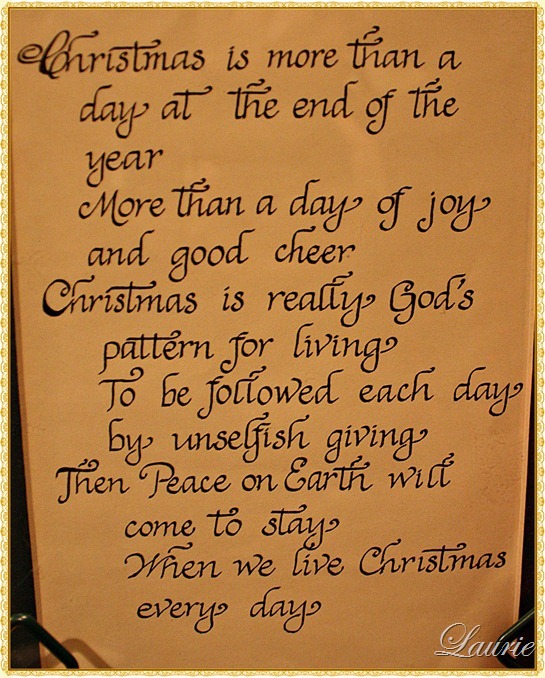 Christmas is more than a
day at the end of the
year
More than a day of joy
and good cheer
Christmas is really God's
pattern for living
To be followed each day
by unselfish giving
Then Peace on Earth will
come to stay
When we live Christmas
every day
Laurie